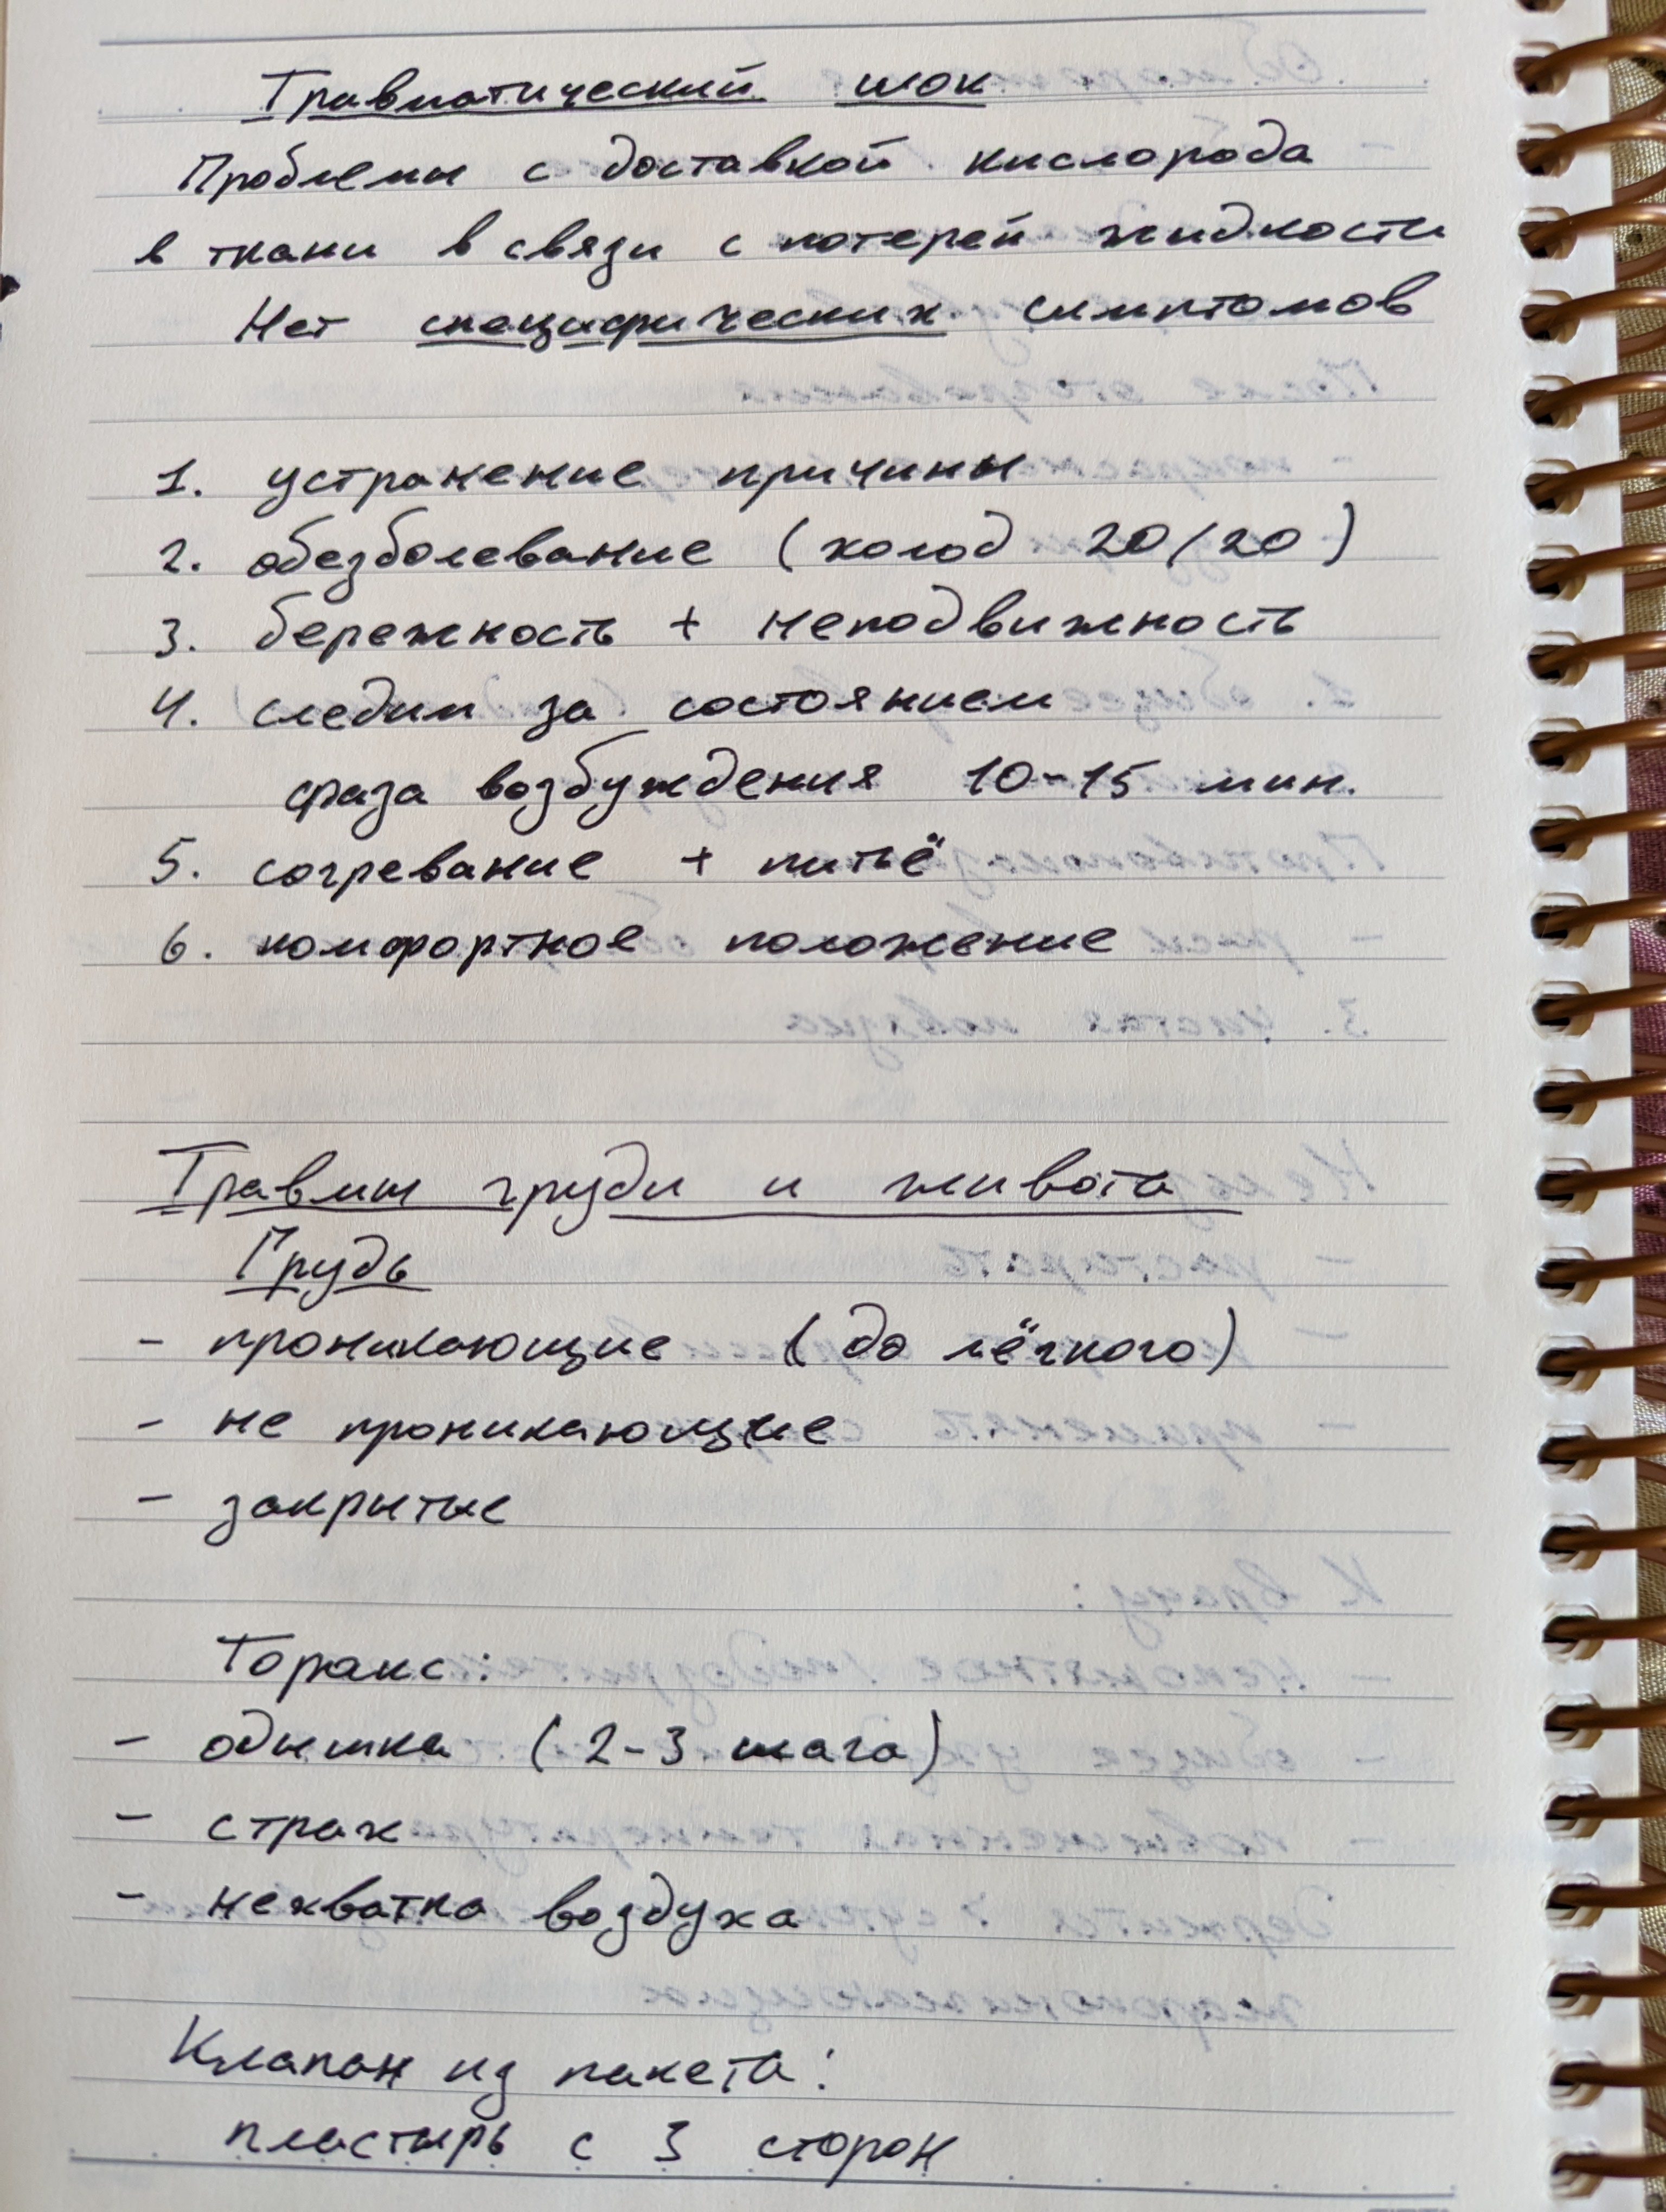 Травматический шок
Проблемы с доставкой кислорода
в ткани в связи с потерей жидкости
Нет специфических симптомов
1. устранение причины
2. обезболевание (холод 20/20)
3. бережность + неподвижность
4. следим за состоянием
фаза возбуждения 10-15 мин.
5. согревание + питьё
6. комфортное положение
Травмы груди и живота
Грудь
- проникающие (до лёгкого)
- не проникающие
- закрытые
Торакс:
- одышка (2-3 шага)
- страх
- нехватка воздуха
Клапан из пакета:
пластырь с 3 сторон